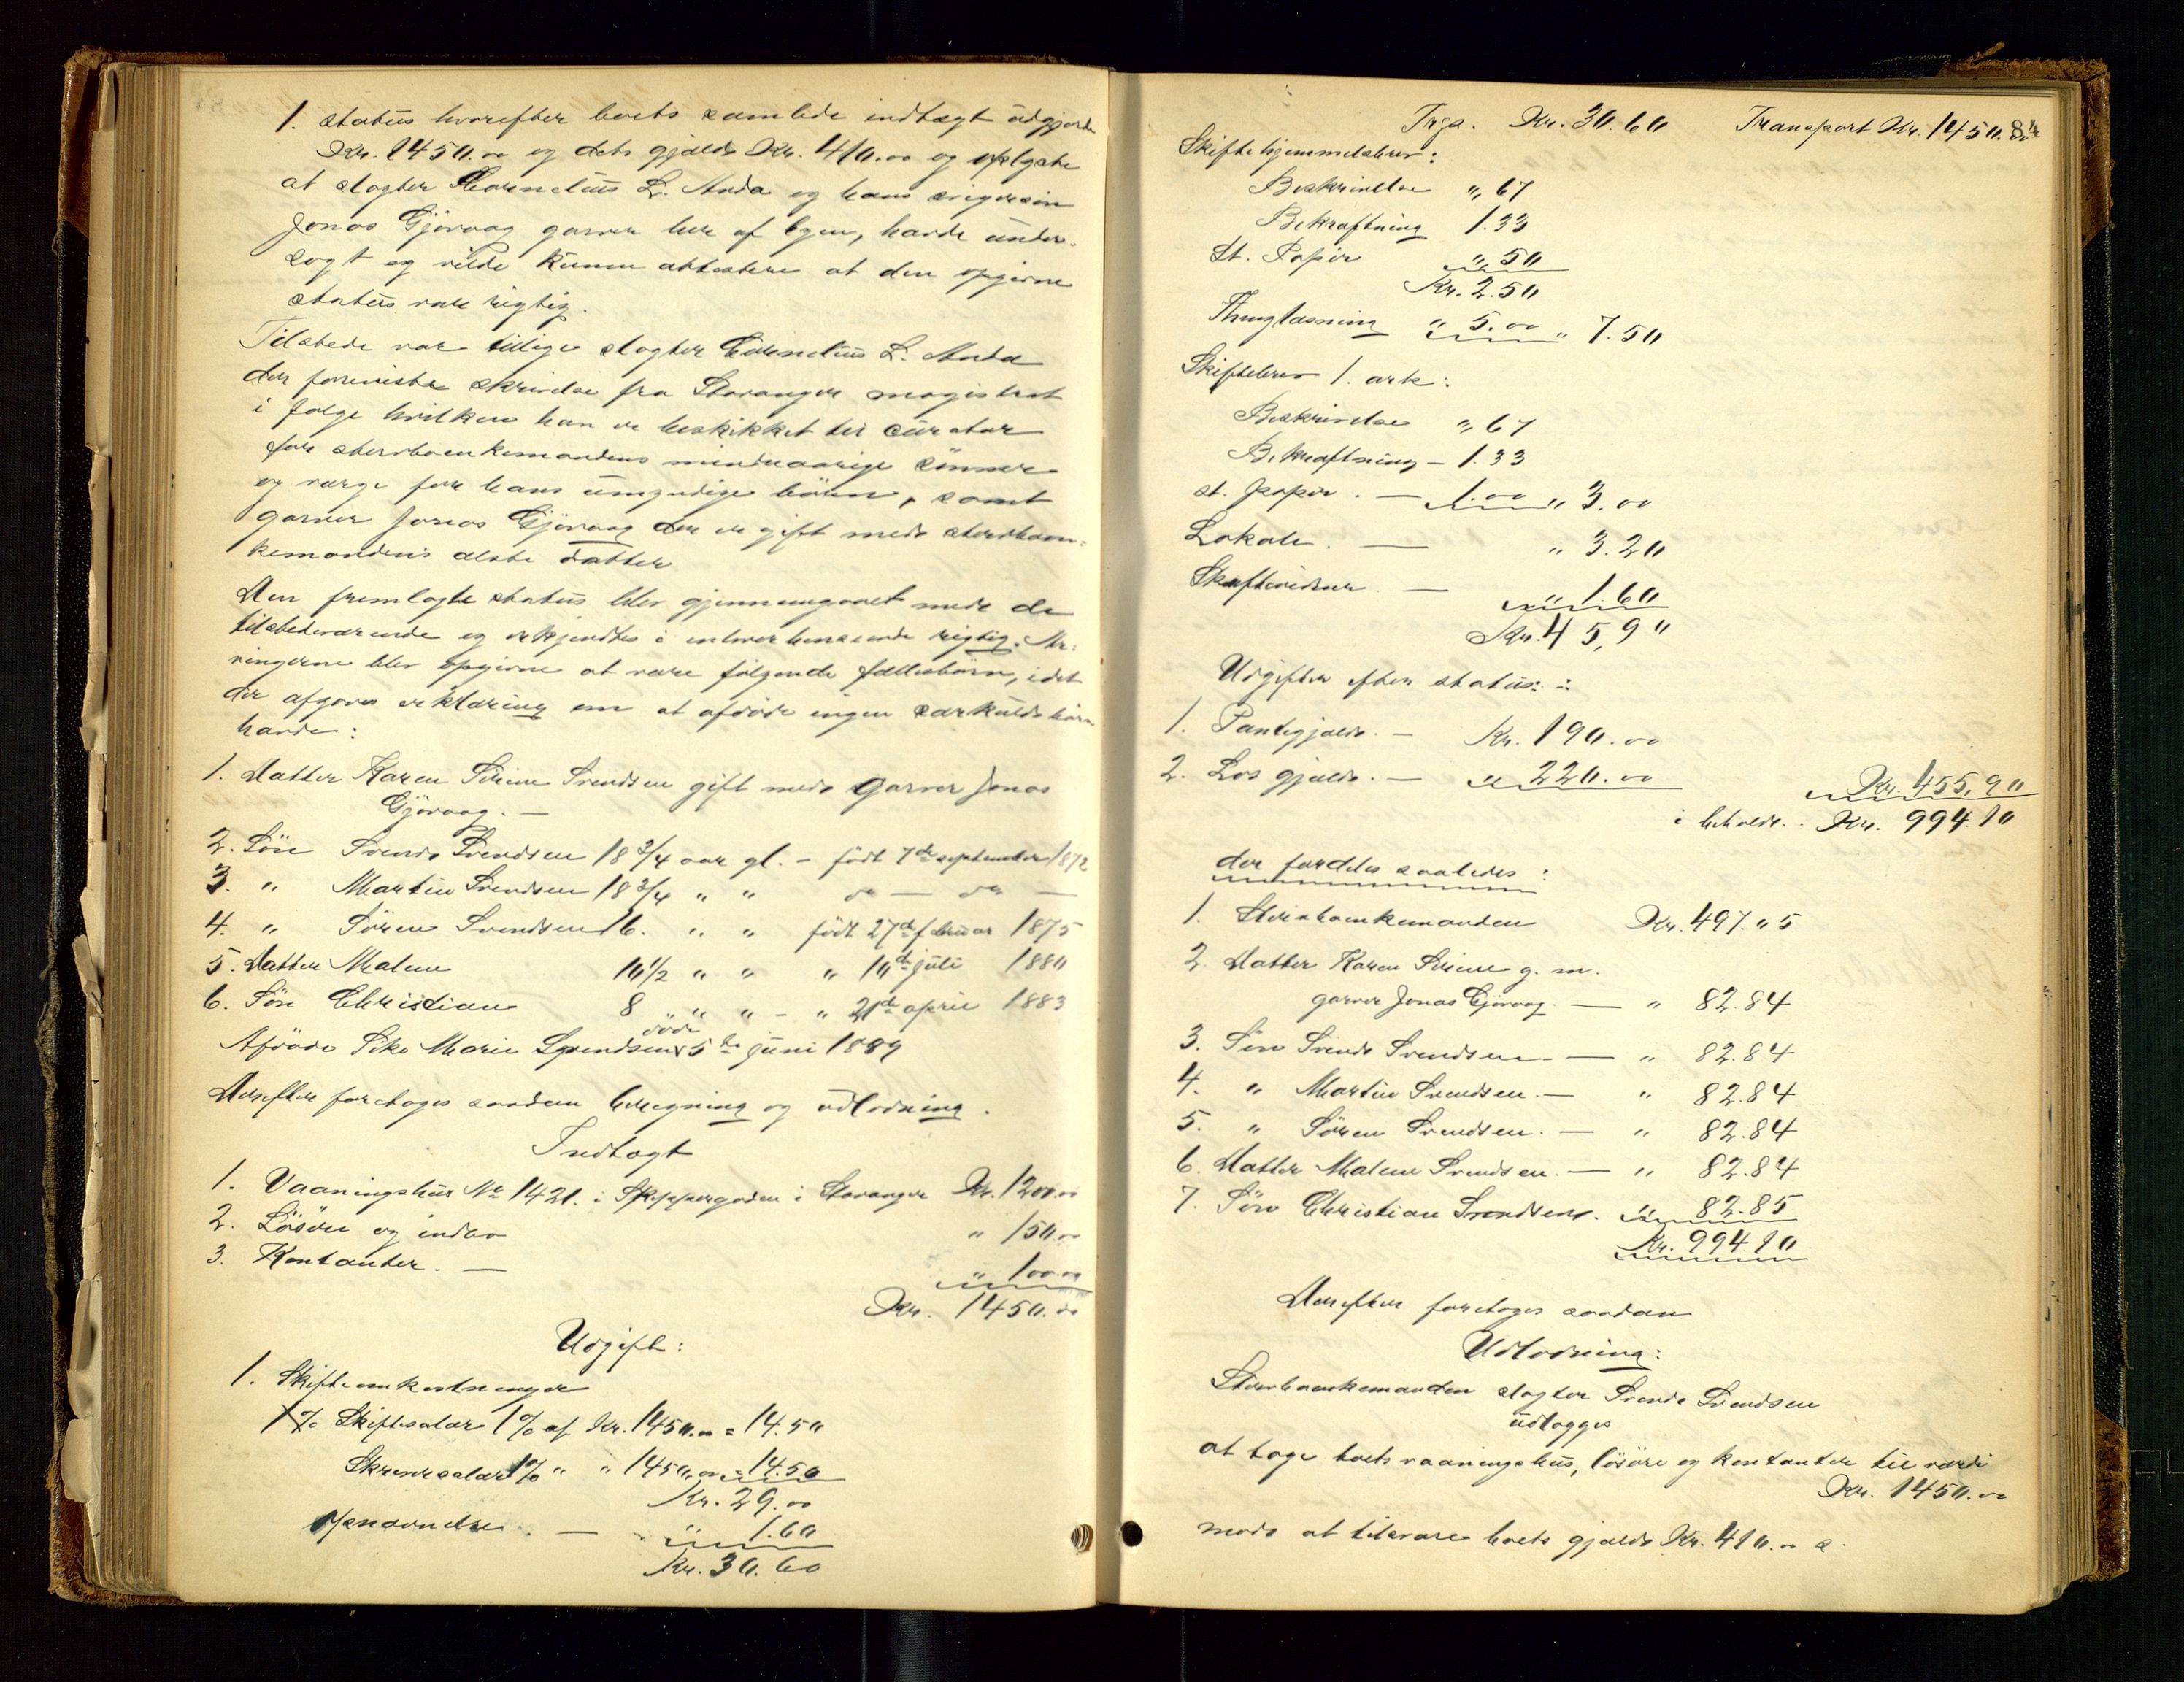 1. status hvorefter boets samlede indtægt udgjorde
Kr. 1450.00 og dets gjæld Kr. 410.00 og oplyste
at slagter Cornelius L. Anda og hans svigersøn
Jonas Gjörvaag garver her af byen, havde under-
søgt og vilde kunne attestere at den opgivne
status var rigtig.
Tilstede var tillige slagter Cornelius L. Anda
der foreviste skrivelse fra Stavanger magistrat
i følge hvilken han er beskikket til curator
for sterboenkemandens mindreaarige sønner
og værge for hans umyndige börn, samt
garver Jonas Gjörvaag der er gift med sterboen-
kemandens ælste datter
Den fremlagte status blev gjennemgaaet med de
tilstedeværende og erkjendtes i enhver henseende rigtig. Ar-
vingerne blev opgivne at være følgende fællesbörn, idet
der afgaves erklæring om at afdøde ingen særkuldsbörn
havde:
1. Datter Karen Serine Svendsen gift med garver Jonas
Gjörvaag. —
2. Sön Svend Svendsen 18 3/4 aar gl. – født 7de september 1872
3. " Martin Svendsen 18 3/4 " " do — do —
4. " Sören Svendsen 16. " " født 27de februar 1875
5. Datter Malene 10 1/2 " " " 10de juli 1880
6. Sön Christian 8 " " – " 21de april 1883
Afdøde Marie Svendsen døde 5te juni 1889
Derefter foretoges saadan beregning og udlodning.
Indtægt
1. Vaaningshus No 1421. i Skippergaden i Stavanger Kr. 1200.00
2. Lösöre og indbo " 150.00
3. Kontanter. — " 100.00
Kr. 1450.00
Udgift:
1. Skifteomkostninger
Skiftesalær 1% af Kr. 1450.00 = 14.50
Skriversalær 1% " " 1450.00 = 14.50
Kr. 29.00
Opnævnelse. — " 1.60
Kr. 30.60
84
Trsp. Kr. 30.60 Transport Kr. 1450.00
Skiftehjemmelsbrev:
Beskrivelse ",67
Bekræftning 1.33
St. Papir ",50
Kr. 2.50
Thinglæsning " 5.00 " 7.50
Skiftebrev 1. ark:
Beskrivelse ",67
Bekræftning – 1.33
st. papir. — 1.00 " 3.00
Lokale. — " 3.20
Skiftevidner — " 1.60
Kr. 45,90
Udgifter efter status:
1. Pantegjæld. – Kr. 190.00
2. Løs gjæld. – " 220.00 Kr. 455,90
i behold. Kr. 994.10
der fordeles saaledes:
1. Sterboenkemanden Kr. 497."5
2. Datter Karen Serine g. m.
garver Jonas Gjörvaag. — " 82.84
3. Sön Svend Svendsen — " 82.84
4. " Martin Svendsen. — " 82.84
5. " Sören Svendsen. — " 82.84
6. Datter Malene Svendsen. — " 82.84
7. Sön Christian Svendsen. " 82.85
Kr. 994.10
Derefter foretoges saadan
Udlodning:
Sterboenkemanden slagter Svend Svendsen
udlægges
at tage boets vaaningshus, lösöre og kontanter til værdi
Kr. 1450.00
mod at tilsvare boets gjæld Kr. 410.00